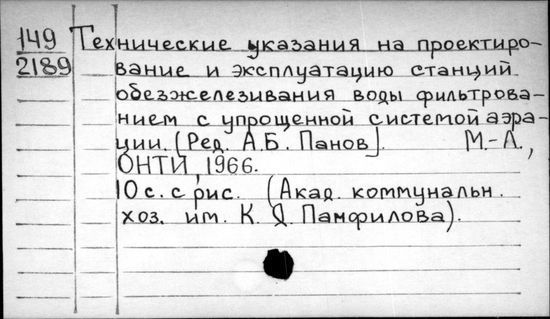 149 Технические указания на проектиро-
2189 вание и эксплуатацию станций
обезжелезивания воды фильтрова-
нием с упрощенной системой аэра-
ции. [Ред. А.Б. Панов]. М.-Л.,
ОНТИ, 1966.
10 с. с рис. (Акад. коммунальн.
хоз. им. К. Д. Памфилова).